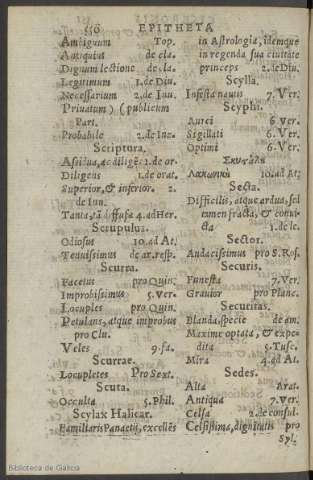 550 EPITHETA
Ambiguum Top.
Antiquius de cla.
Dignum lectione de cla.
Legitimum 1. de Diu.
Necessarium 2. de Inu.
Priuatum) (publicum
Part.
Probabile 2. de Inu.
Scriptura.
Assidua, ac diligēs 1. de or.
Diligens 1. de orat.
Superior, & inferior. 2.
de Inu.
Tanta, tā diffusa 4. ad Her.
Scrupulus.
Odiosus 10. ad At.
Tenuissimus de ar. resp.
Scurra.
Facetus pro Quin.
Improbissimus 5. Ver.
Locuples pro Quin.
Petulans, atque improbus
pro Clu.
Veles 9. fa.
Scurrae.
Locupletes Pro Sext.
Scuta.
Occulta 5. Phil.
Scylax Halicar.
Familiaris Panaetii, excellēs
in Astrologia, idemque
in regenda sua ciuitate
princeps 2. de Diu.
Scylla.
Infesta nautis 7. Ver.
Scyphi.
Aurei 6. Ver.
Sigillati 6. Ver.
Optimi 6. Ver.
Σκυτάλη
Λακωνικὴ 10. ad At.
Secta.
Difficilis, atque ardua, sed
tamen fracta, & conui-
cta 1. de le.
Sector.
Audacissimus pro S. Ros.
Securis.
Funesta 7. Ver.
Grauior pro Planc.
Securitas.
Blanda, specie de am.
Maxime optata, & expe-
dita 5. Tusc.
Mira 4. ad At.
Sedes.
Alta Arat.
Antiqua 7. Ver.
Celsa 2. de consul.
Celsissima, dignitatis pro
Syl.
Biblioteca de Galicia